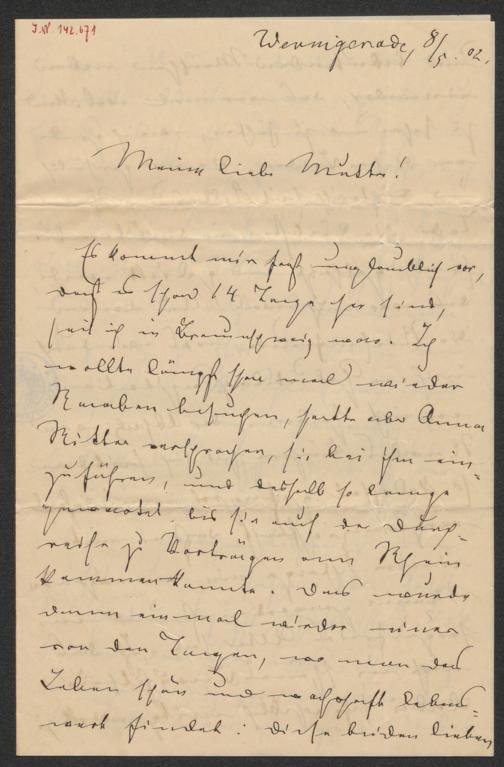 J.N. 142.671
Wernigerode, 8/5. 02.
Meine liebe Mutter!
Es kommt mir fast unglaublich vor,
daß es schon 14 Tage her sind,
seit ich in Braunschweig war. Ich
wollte längst schon mal wieder
Raaben besuchen, hatte aber Anna
Ritter versprochen, sie bei ihm ein-
zuführen, und deshalb so lange
gewartet bis sie auf der Durch-
reise zu Vorträgen am Rhein
kommen konnte. Das wurde
dann einmal wieder einer
von den Tagen, wo man das
Leben schön und wahrhaft lebens-
wert findet: diese beiden lieben